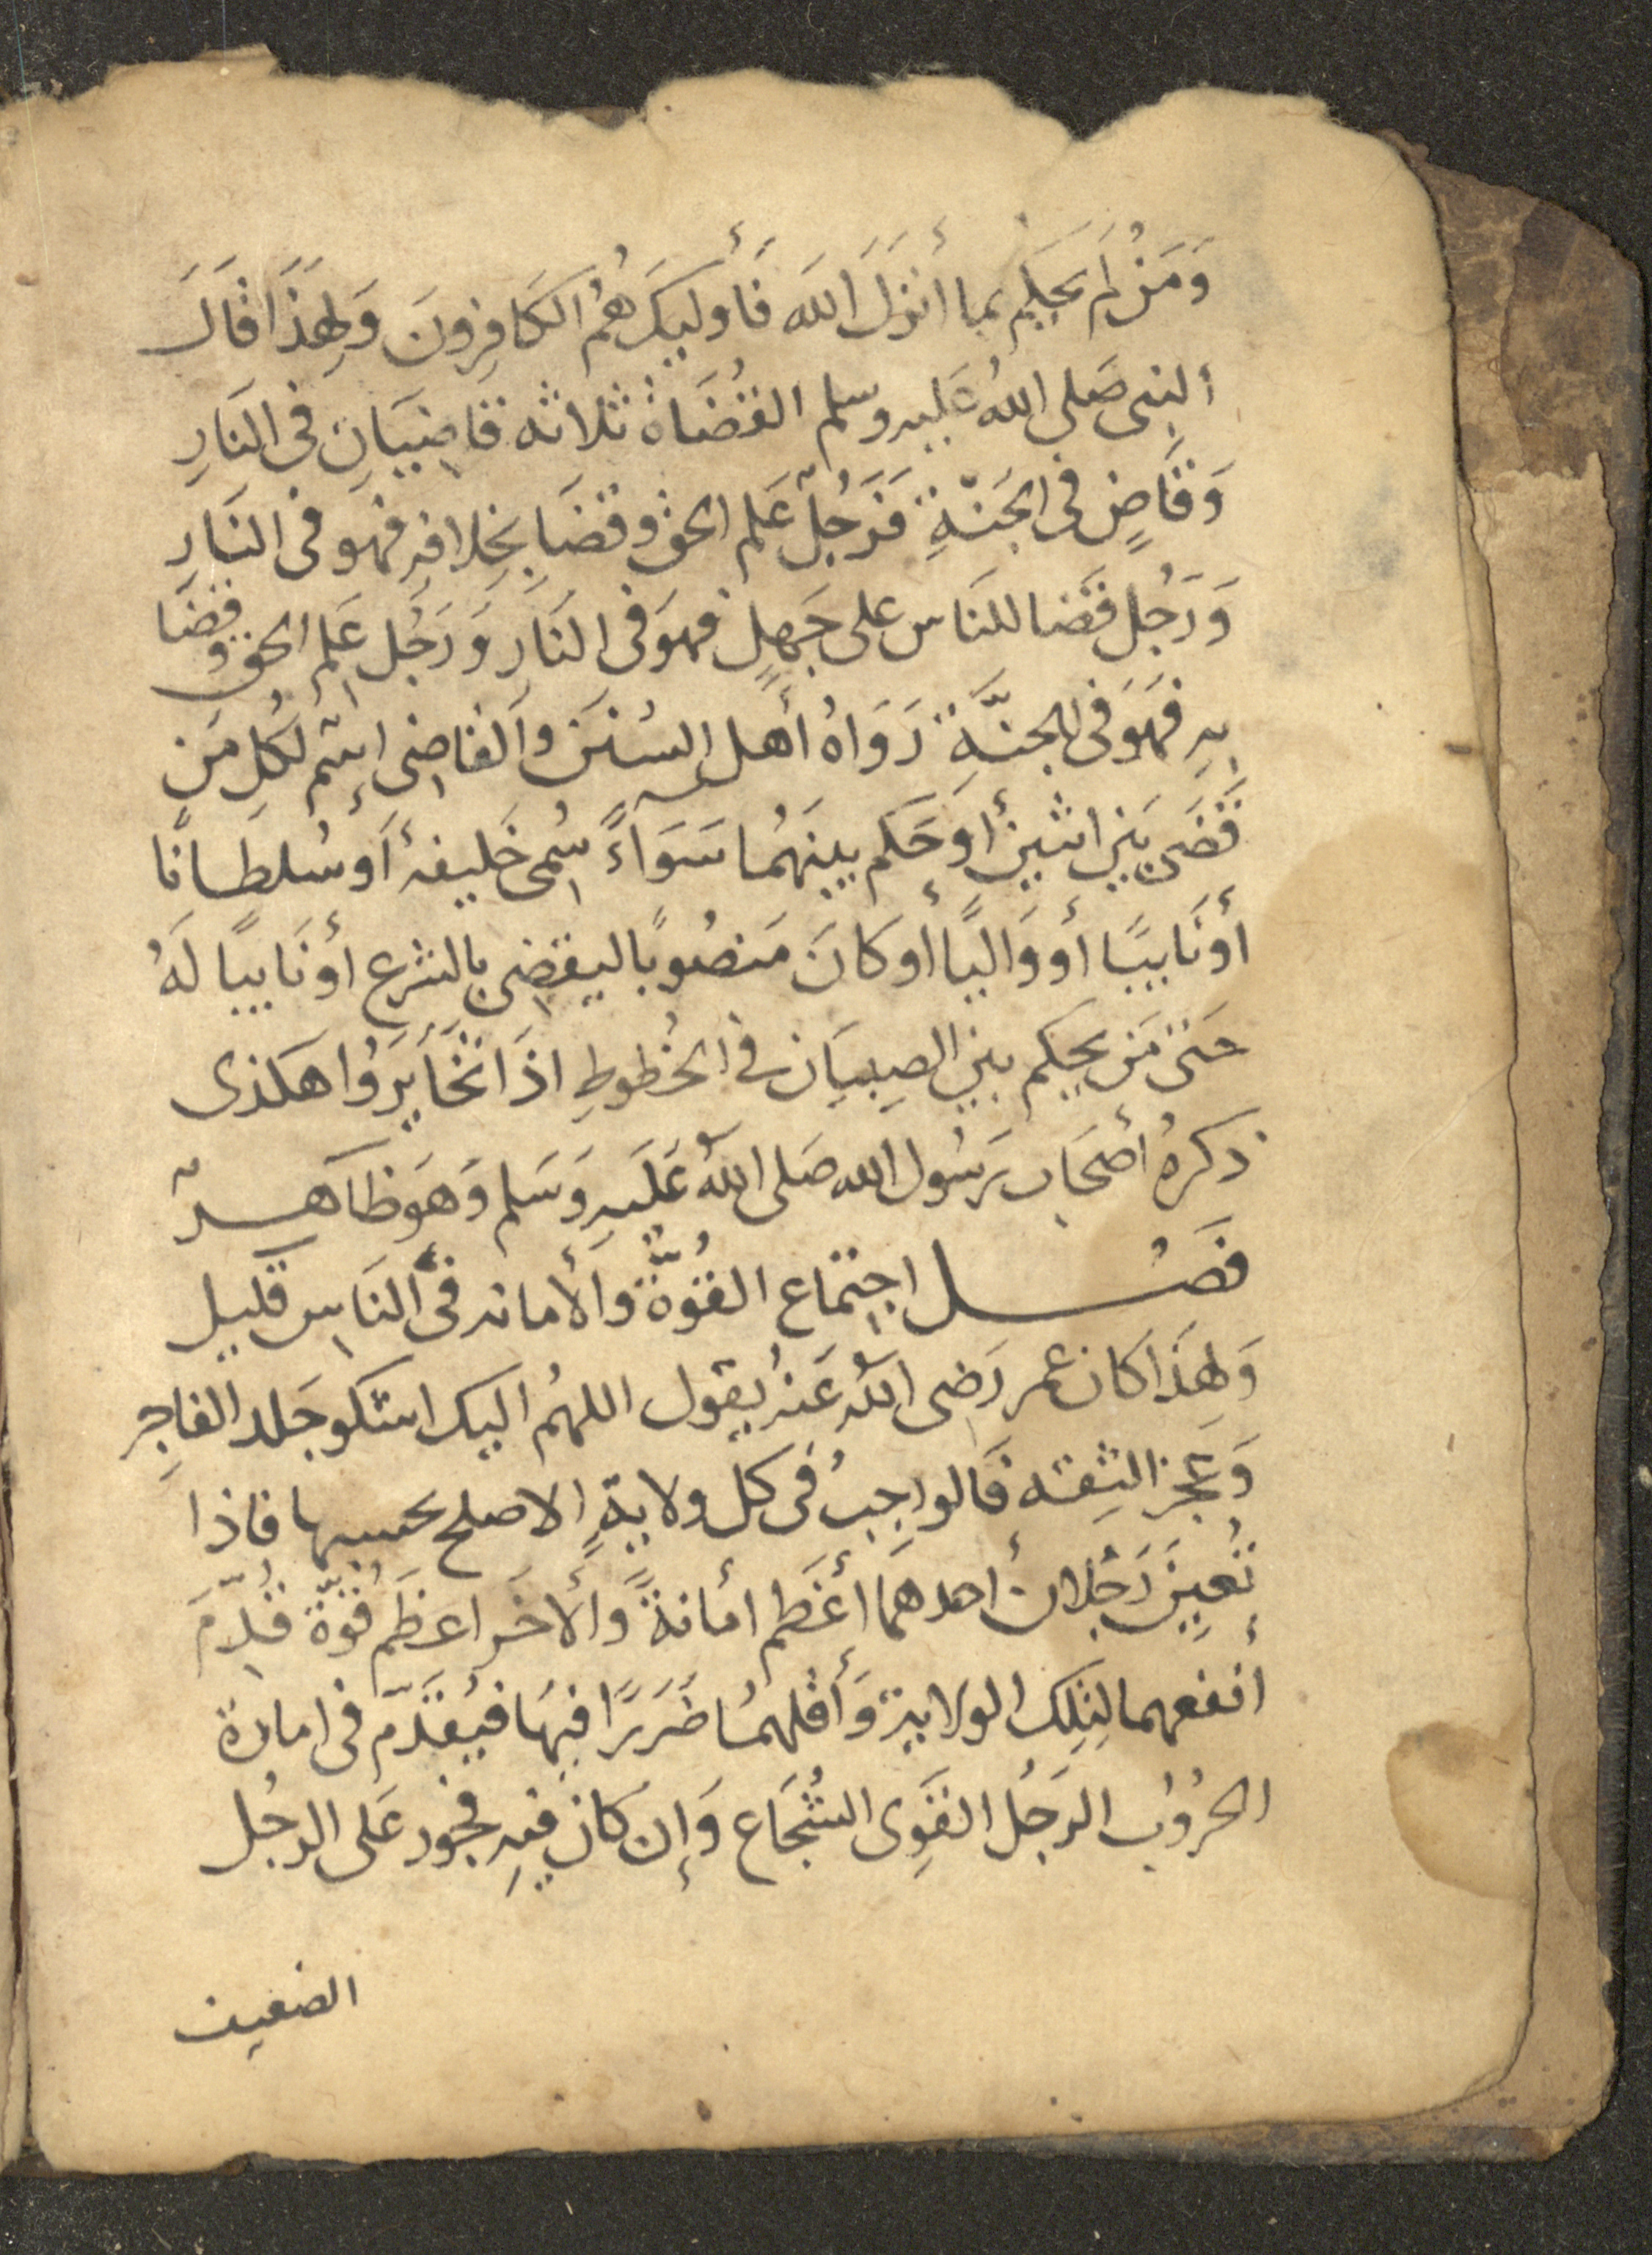 وَمَنْ لَم يَحكِم بما أنزَلَ اللَه فَأُولَيكَ هُمُ الكَافِرونَ وَلِهَذَا قَالَ
النبى صَلى اللهُ عَليه وسلم القُضَاةُ ثلاثه قاضِيَانِ فى النَارِ
وَقَاضٍ فى الجَنّةِ فَرَجُلٌ عَلم الحق وقضَا بِخِلافِهِ فهو فى النَارِ
وَرَجُل قَضا للنَاس على جَهلٍ فهوَ فى النَارِ وَرَجُل عَلِمَ الحق وقضَا
بِهِ فَهَوَ فى الجنَّةِ رَوَاهُ أهل السُنَن وَالقاضِى إسْم لكُلِ مَن
قَضَى بَين اثنين أو حَكم بينَهُما سَوَاءً سُمِى خَليفة أَو سُلطانًا
أونَايبًا أو وَاليًا أو كانَ مَنصُوبًا ليقضِى بالشرع أو نَايبًا لَهُ
حَتى مَن يحكم بين الصِبيَان فى الخُطوطِ اذَا تَخَايَرُوا هَكذى
ذكرهُ أصحَاب رَسُول الله صَلى اللهُ عَلَيهِ وَسَلم وَهَوَ ظَاهِرٌ
فَصْل اجتماع القُوَّة وَالأمانه فى النَاسِ قليل
وَلِهَذَا كان عمر رَضِى اللهُ عَنهُ يقول اللهُم اليك اشكو جَلد الفاجِرِ
وَعجز الثِقه فَالواجِبُ فى كل ولايةٍ الاصلح بحسبها فاذا
تُعِين رَجُلان أحدهمَا أعظم أمانةً وَالأخَر اعظَم قُوّة قُدِّمَ
أنفعهما لتِلِكَ الولايةِ وَأقلهمُا ضَرَرًا فيهَا فيُقَدَّم فى امارة
الحُرُوبُ الرَجُل القَوِى الشُجَاع وَإن كَان فيهِ فجور عَلى الرجُل
الضعيف